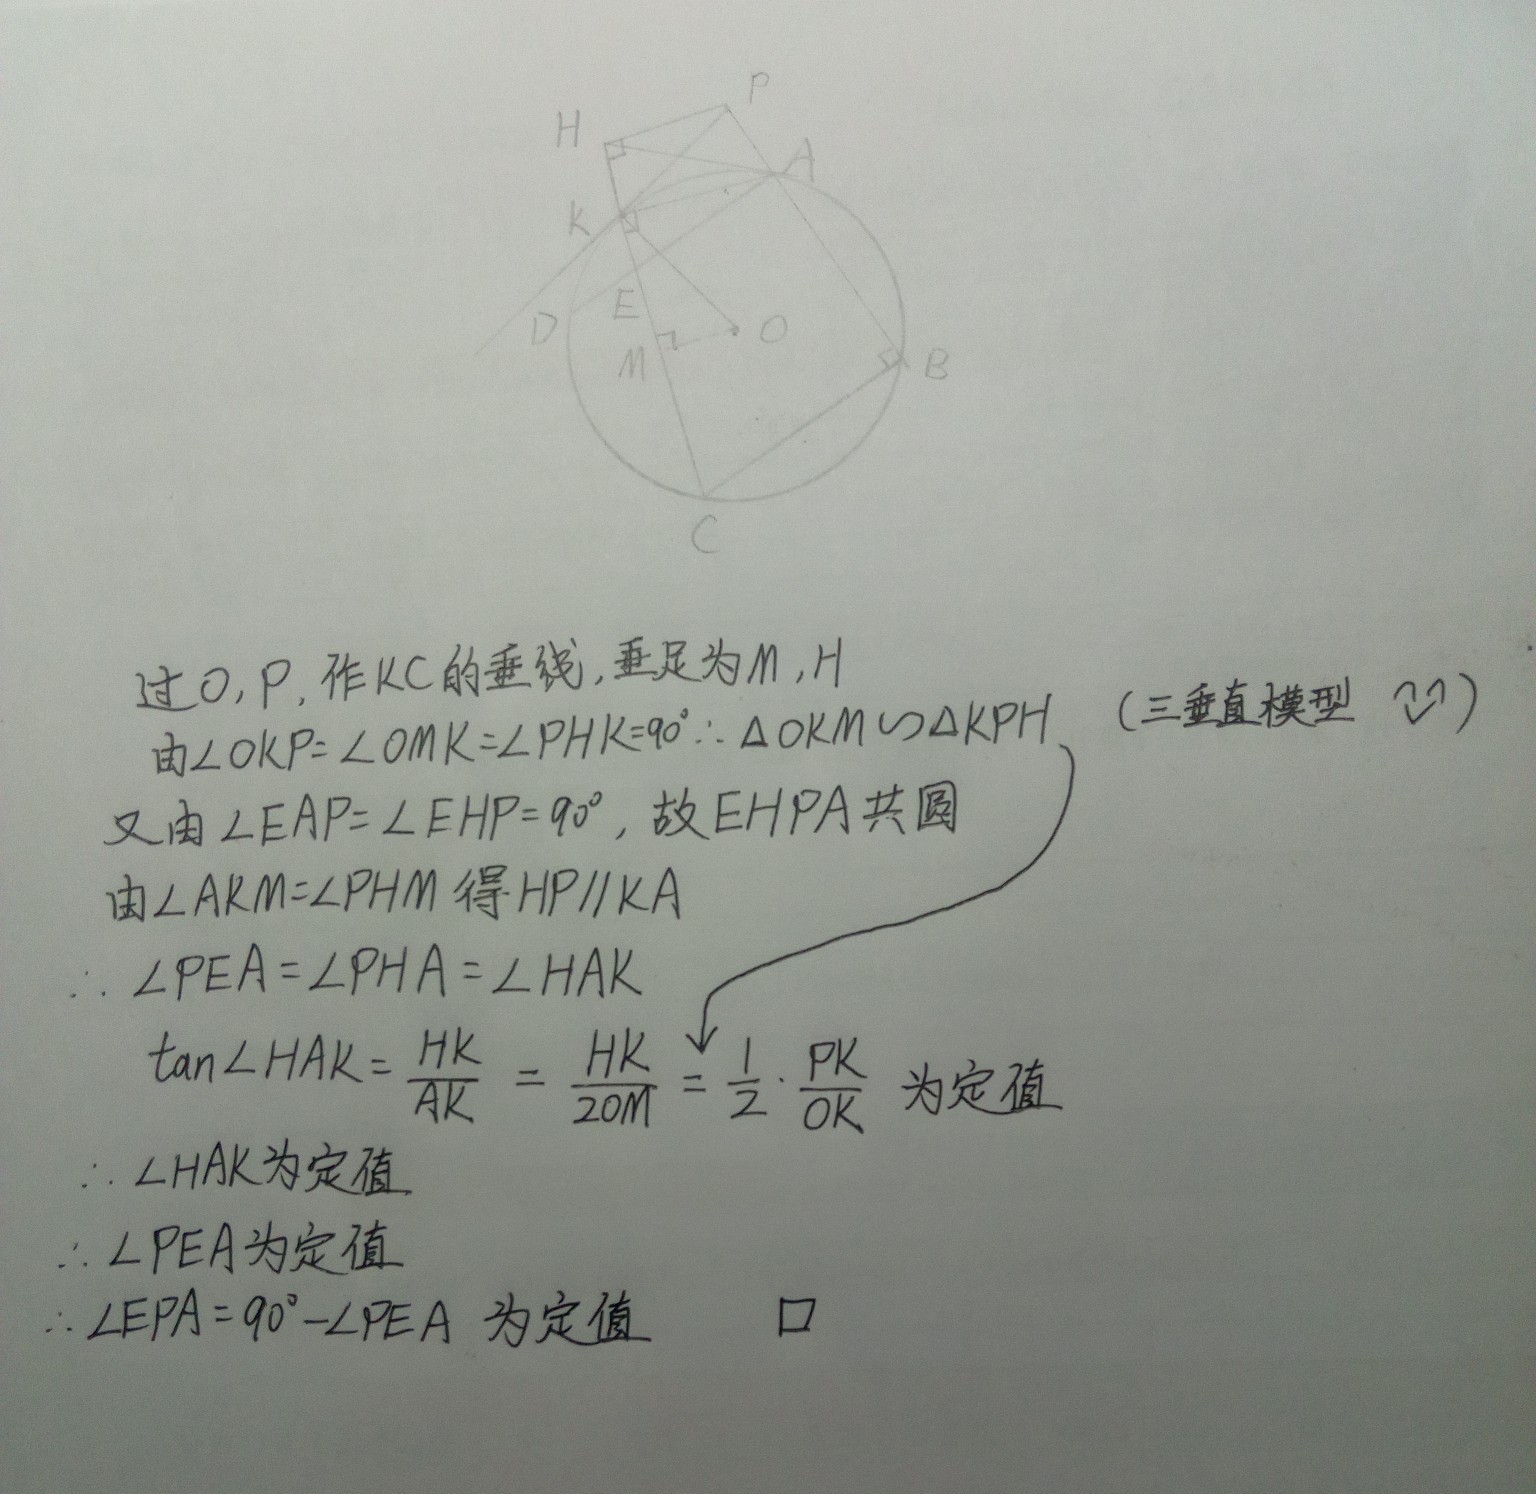 P
H
A
K
E
D
O
M
B
C
过O,P,作KC的垂线,垂足为M,H
由∠OKP=∠OMK=∠PHK=90°∴△OKM∽△KPH (三垂直模型)
又由∠EAP=∠EHP=90°,故EHPA共圆
由∠AKM=∠PHM得HP//KA
∴∠PEA=∠PHA=∠HAK
tan∠HAK=HK/AK=HK/2OM=1/2·PK/OK 为定值
∴∠HAK为定值
∴∠PEA为定值
∴∠EPA=90°-∠PEA 为定值 □